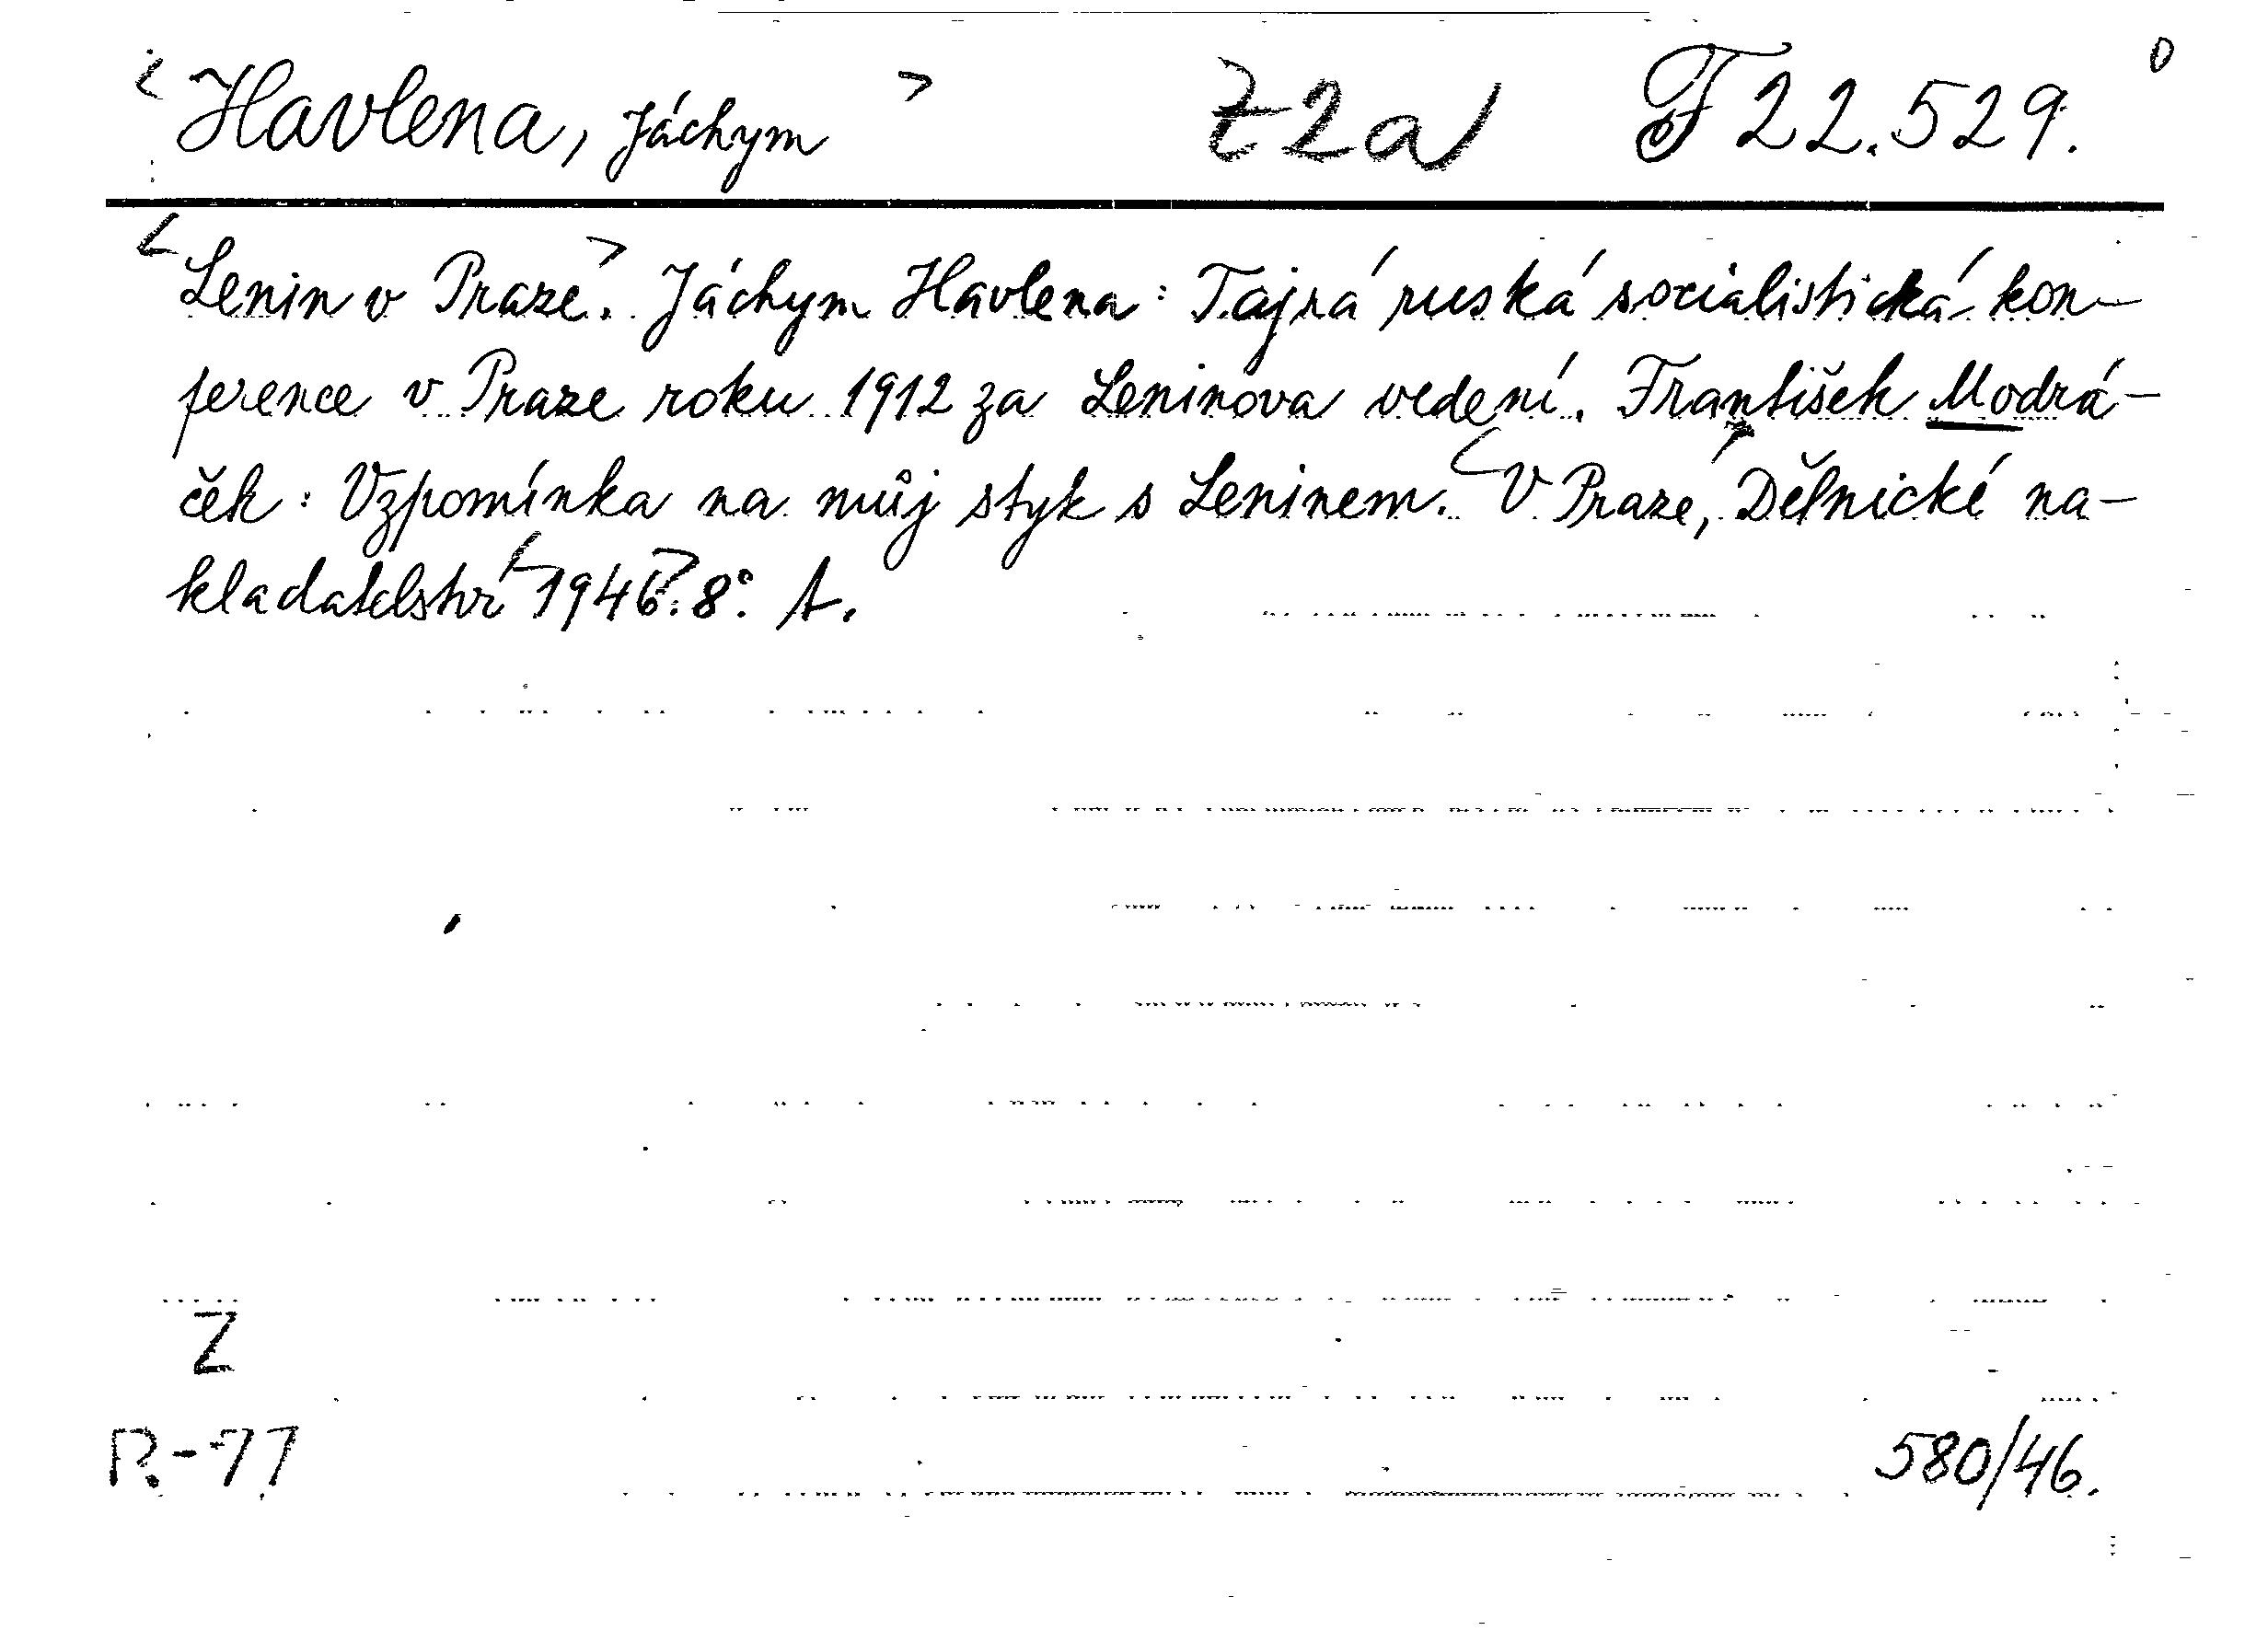 <Havlena, Jáchym> Z2a F 22.529.
<Lenin v Praze.> Jáchym Havlena: Tajná ruská socialistická kon-
ference v Praze roku 1912 za Leninova vedení. František Modrá-
ček: Vzpomínka na můj styk s Leninem. <V Praze,> Dělnické na-
kladatelství <1946>. 8°. A.
Z
R-77
580/46.